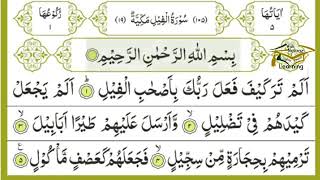 اٰیَاتُهَا ٥ (١٠٥) سُوْرَةُ الْفِيْلِ مَكِّيَّةٌ (١٩) رُكُوْعُهَا ١
بِسْمِ اللّٰهِ الرَّحْمٰنِ الرَّحِيْمِ
اَلَمْ تَرَ كَيْفَ فَعَلَ رَبُّكَ بِاَصْحٰبِ الْفِيْلِ ١ اَلَمْ يَجْعَلْ
كَيْدَهُمْ فِيْ تَضْلِيْلٍ ٢ وَّاَرْسَلَ عَلَيْهِمْ طَيْرًا اَبَابِيْلَ ٣
تَرْمِيْهِمْ بِحِجَارَةٍ مِّنْ سِجِّيْلٍ ٤ فَجَعَلَهُمْ كَعَصْفٍ مَّاْكُوْلٍ ٥
Learning